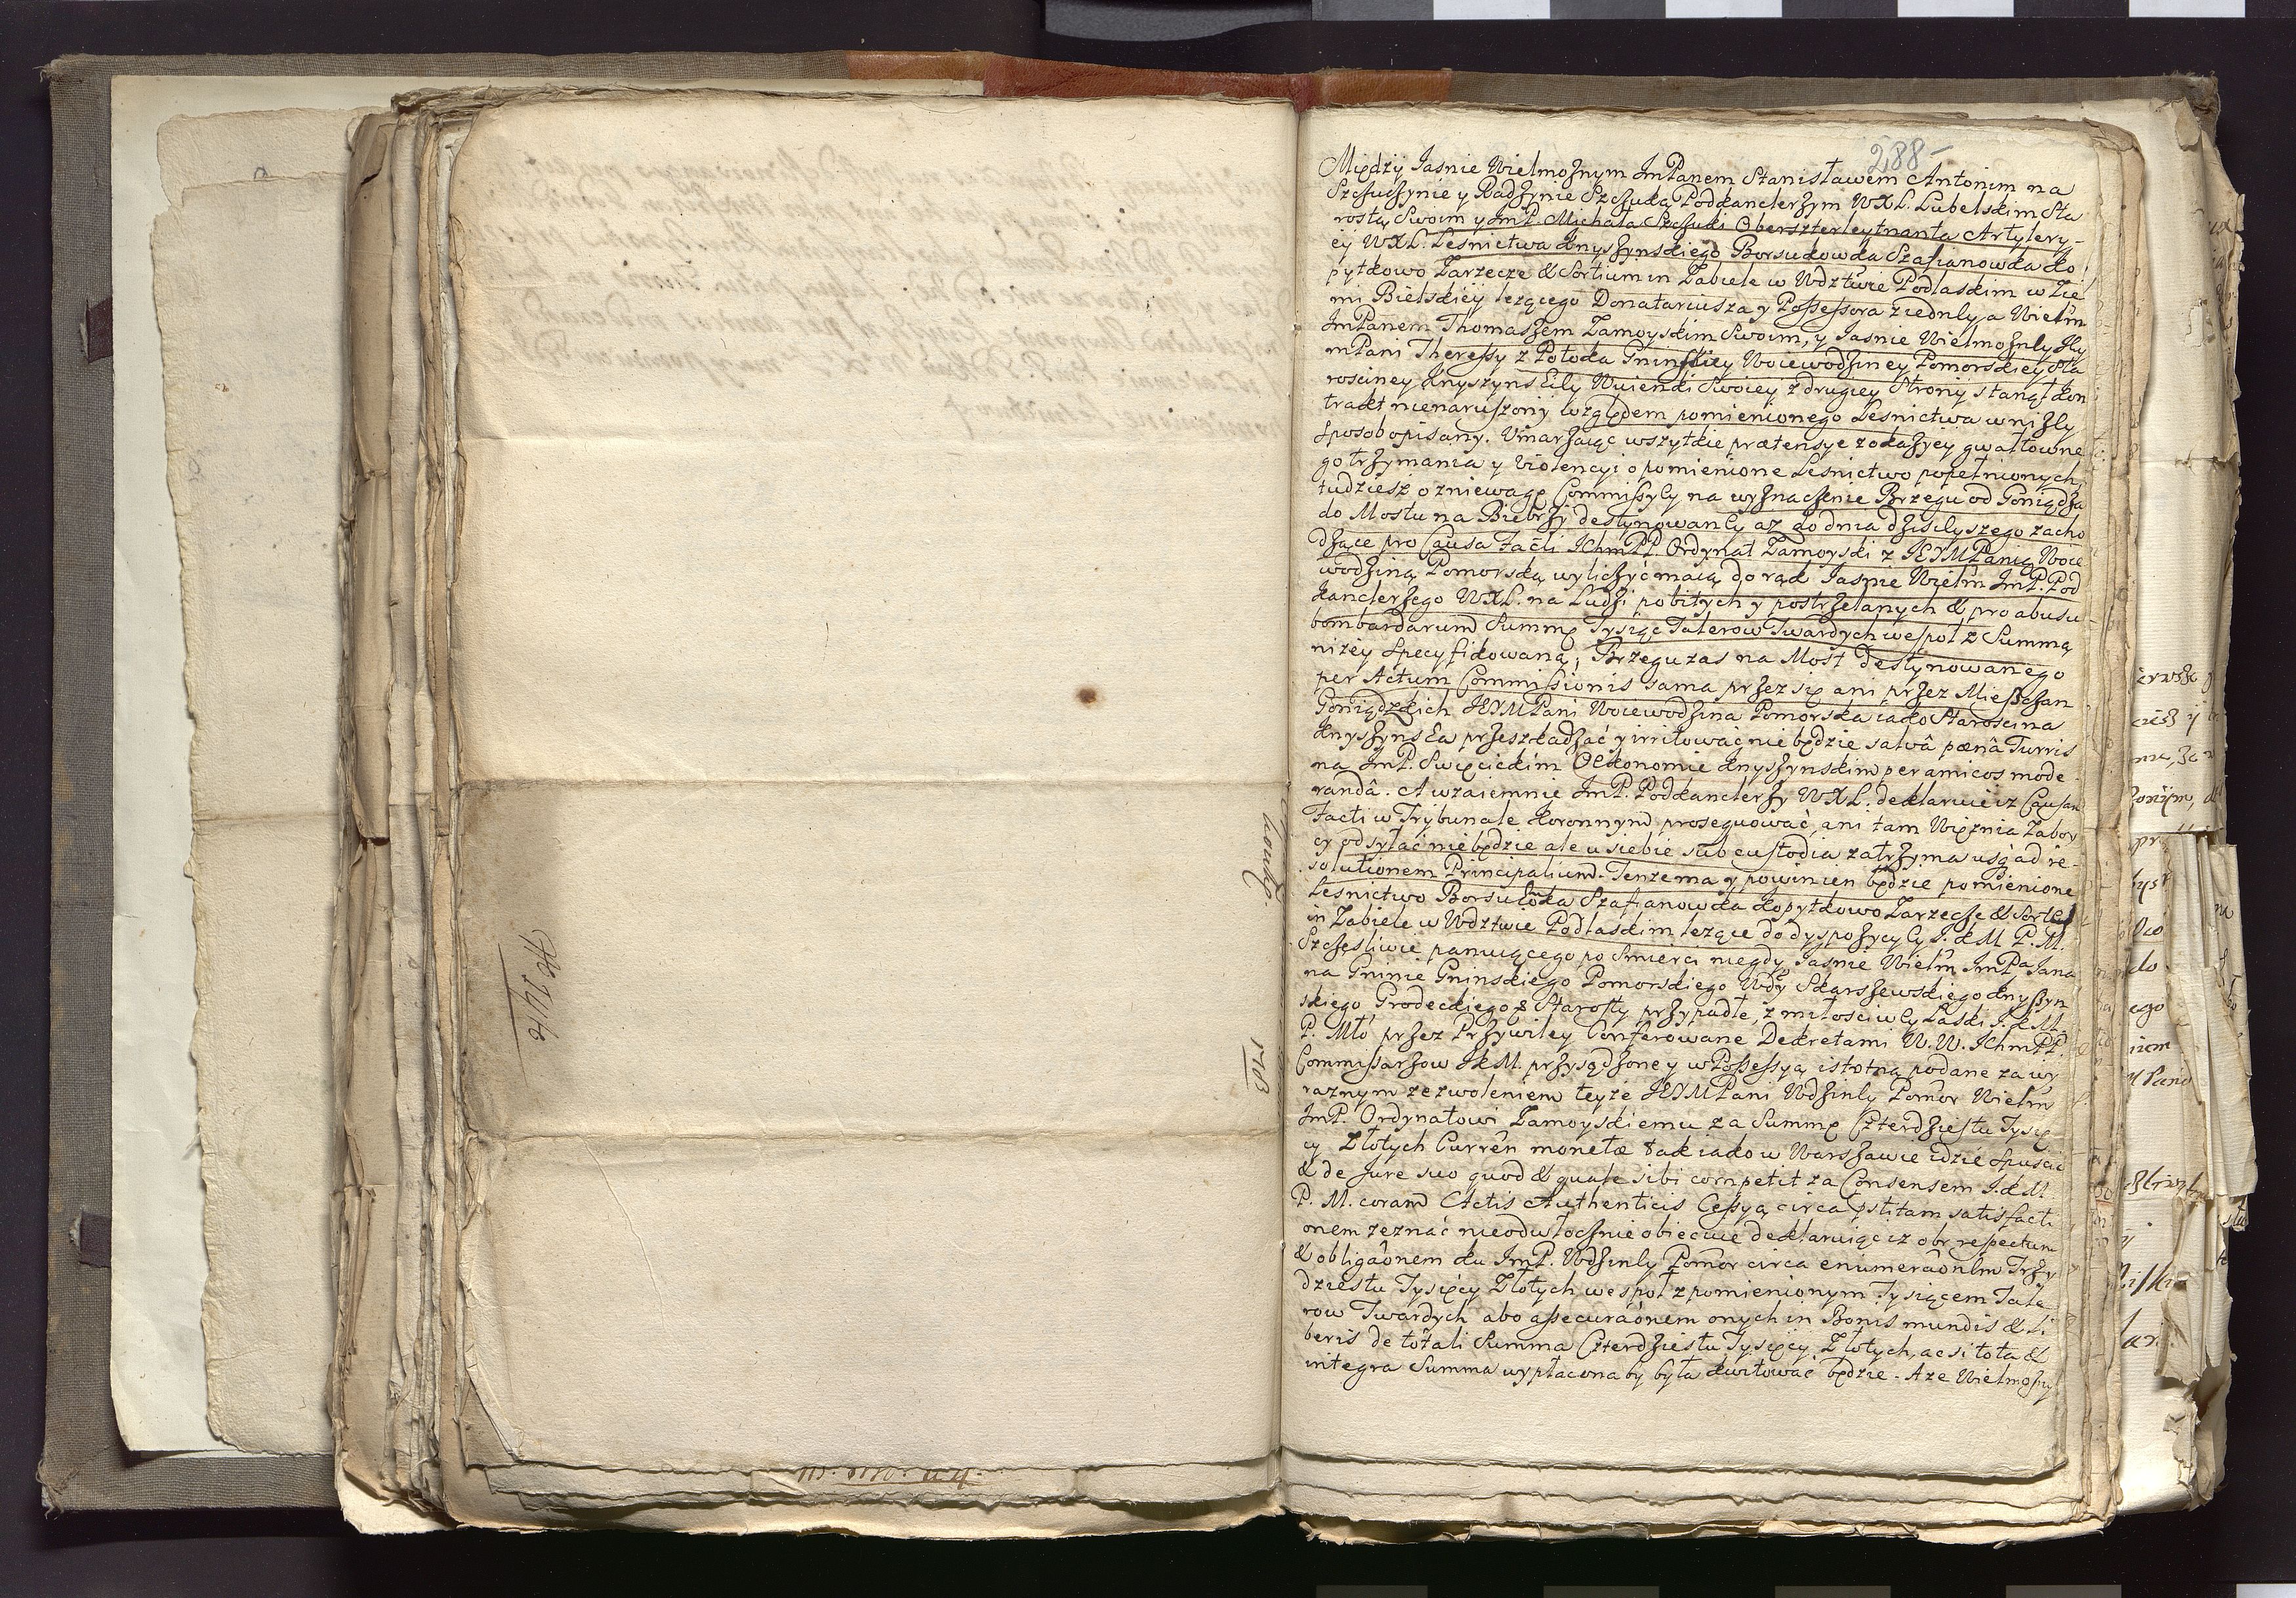 288
Między Jasnie Wielmożnym JmPanem Stanisławem Antonim na
Szczuczynie y Radzynie Szczuką Podkanclerzym WXL. Lubelskim Sta
rostą Swoim y JmP. Michała Szczuki Oberszterleytnanta Artylery-
ey WXL. Lesnictwa Knyszynskiego Borsukowka Szafianowka Ko
pytkowo Zarzecze & Sortium in Zabiele w Wdztwie Podlaskim w Zie
mi Bielskiey lezącego Donatariusza y Possessora z iedney, a Wielm
JmPanem Thomaszem Zamoyskim Swoim, y Jasnie Wielmożney Jey
mPani Theressy z Potoka Gninskiey Woiewodziney Pomorskiey Sta
rosciney Knyszynskiey Wuienki Swoiey z drugiey Strony stanął kon
trakt nienaruszony względem pomienionego Lesnictwa w niszy
sposob opisany. Umarzaiąc wszytkie prætensye z okazyey gwałtowne
go trzymania y Violencyi o pomienione Lesnictwo popełnionych,
tudziesz o zniewagę Commissyey na wyznaczenie Brzegu od Goniądza
do Mostu na Biebrzy destynowaney az do dnia dzisieyszego zacho
dzące pro Causa Facti IchmPP. Ordynat Zamoyski z JEYMPanią Woie
wodziną Pomorską wyliczyć maią do rąk Jasnie Wielm JmP. Pod
kanclerzego WXL. na Ludzi pobitych y postrzelanych & pro abusu
bombardarum Summę Tysiąc Talerow Twardych wespoł z Summą
niżey specyfikowaną, Brzegu zas na Most destynowanego
per Actum Commissionis sama przez się ani przez Mieszczan
Goniądzkich JEYMPani Woiewodzina Pomorska iako Staroscina
Knyszynska przeszkadzać y irritować nie będzie salvâ pœnâ Turris
na JmP. Swięcickim Oekonomie Knyszynskim per amicos mode
randâ. A wzaiemnie JmP. Podkanclerzy WXL. deklaruie iz Causam
Facti w Trybunale Koronnym prosequować, ani tam Więznia Zabor
cy odsyłać nie będzie ale u siebie sub custodia zatrzyma usq ad re-
solutionem Principalium. Tenze ma y powinien będzie pomienione
Lesnictwo Borsukowka Szafianowka Kopytkowo Zarzecze & Sortes
in Zabiele w Wdztwie Podlaskim lezące do dyspozycyey J. K M P. M.
Szczęsliwie panuiącego po Smierci niegdy Jasnie Wielm JmPa Jana
na Gninie Gninskiego Pomorskiego Wdy Skarszewskiego Knyszyn
skiego Grodeckiego & Starosty przypadłe, z miłosciwey Łaski J. K M.
P. Mło przez Przywiley Conferowane Dekretami W. W. IchmPP.
Commissarzow JKM. przysądzone y w Possessyą istotną podane za wy
raznym zezwoleniem teyze JEYMPani Wdziney Pomor Wielm
JmP. Ordynatowi Zamoyskiemu za Summę Czterdziestu Tysię
cy Złotych Curren monetæ tak iako w Warszawie idzie spuscić
& de Jure suo quod & quale sibi competit za Consensem J. K M.
P. M. coram Actis Authenticis Cessyą circa pstitam satisfacti
onem zeznać nieodwłocznie obiecuie deklaruiąc iz ob respectum
& obligaônem ku JmP. Wdziney Pomor circa enumeraônem Trzy
dziestu Tysięcy Złotych wespoł z pomienionym Tysiącem Tale
row Twardych abo assecuraônem onych in Bonis mundis & li
beris de totali Summa Czterdziestu Tysięcy Złotych, ac si tota &
integra Summa wypłacona by była kwitować będzie. Aze Wielmożny
1703